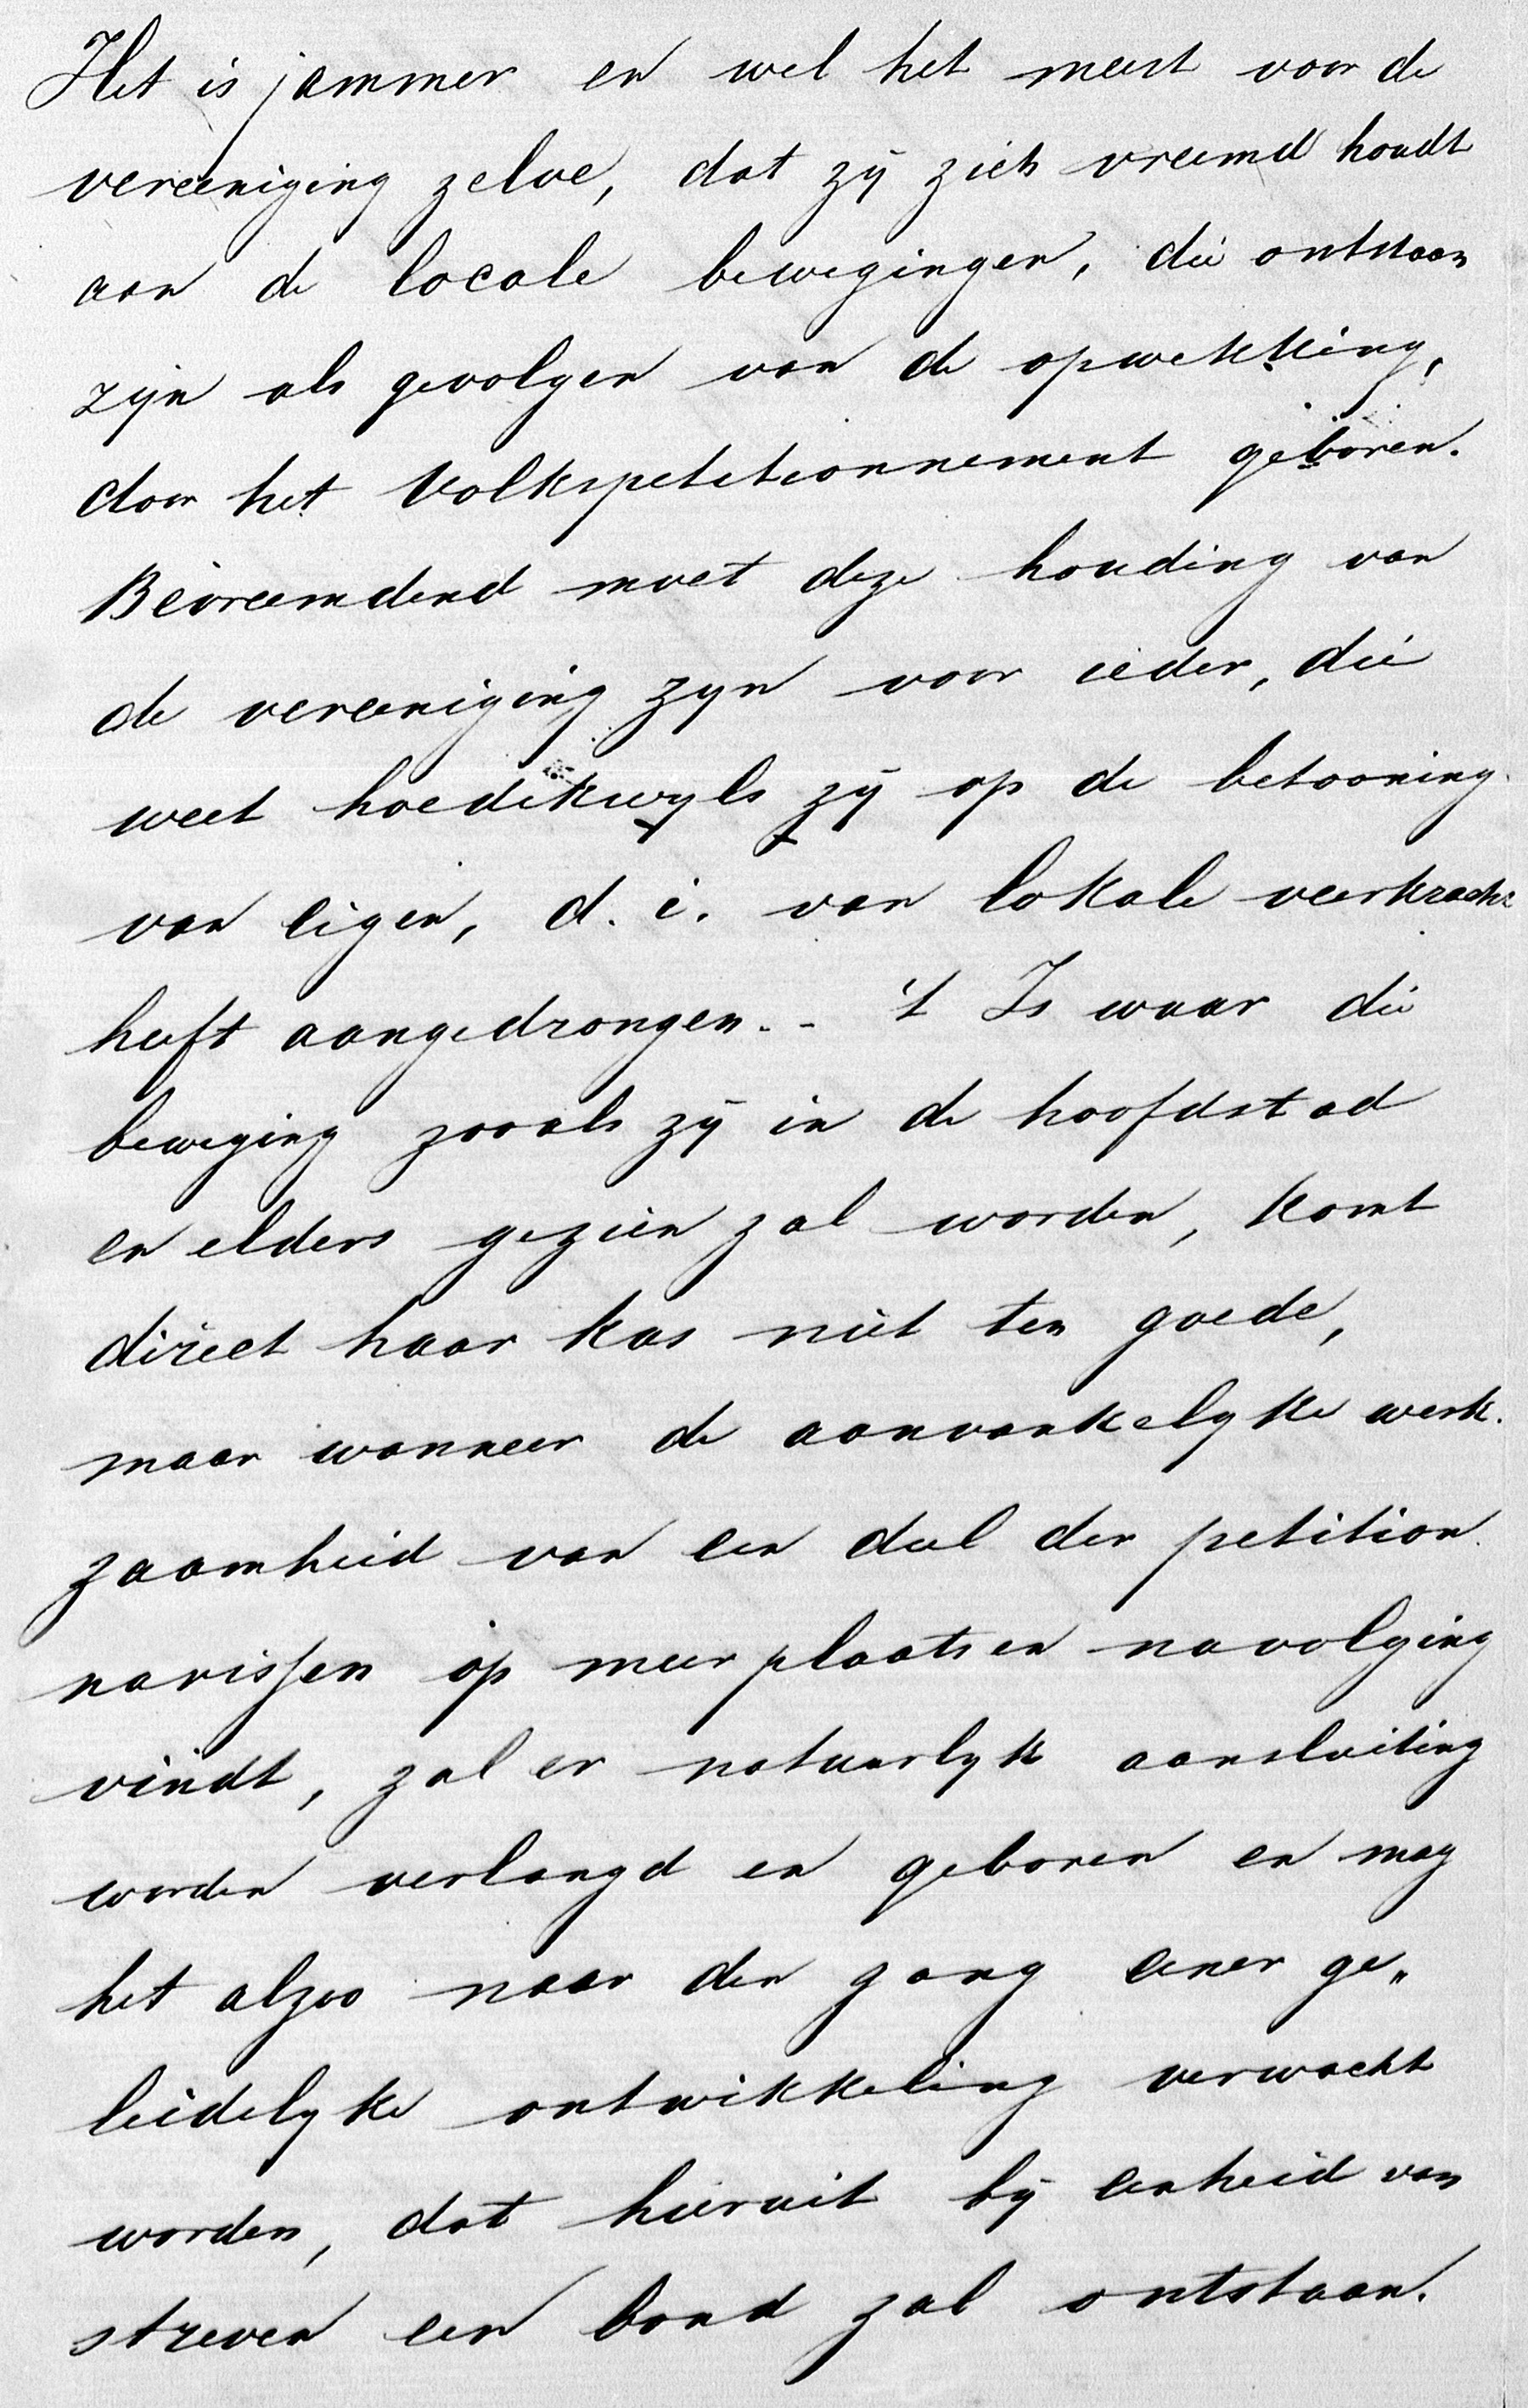 Het is jammer en wel het meest voor de
vereeniging zelve, dat zij zich vreemd houdt
aan de locale bewegingen, die ontstaan
zijn als gevolgen van de opwekking,
door het Volkspetitionnement geboren.
Bevreemdend moet deze houding van
de vereeniging zyn voor ieder, die
weet hoedikwyls zij op de betooning
van eigen, d. i. van lokale veerkracht
heeft aangedrongen. - 't Is waar die
beweging zooals zij in de hoofdstad
en elders gezien zal worden, komt
direct haar kas niet ten goede,
maar wanneer de aanvankelyke werk-
zaamheid van een deel der petition-
narissen op meer plaatsen navolging
vindt, zal er natuurlyk aansluiting
worden verlangd en geboren en mag
het alzoo naar den gang eener ge„
leidelyke ontwikkeling verwacht
worden, dat hieruit bij eenheid van
streven een bond zal ontstaan.